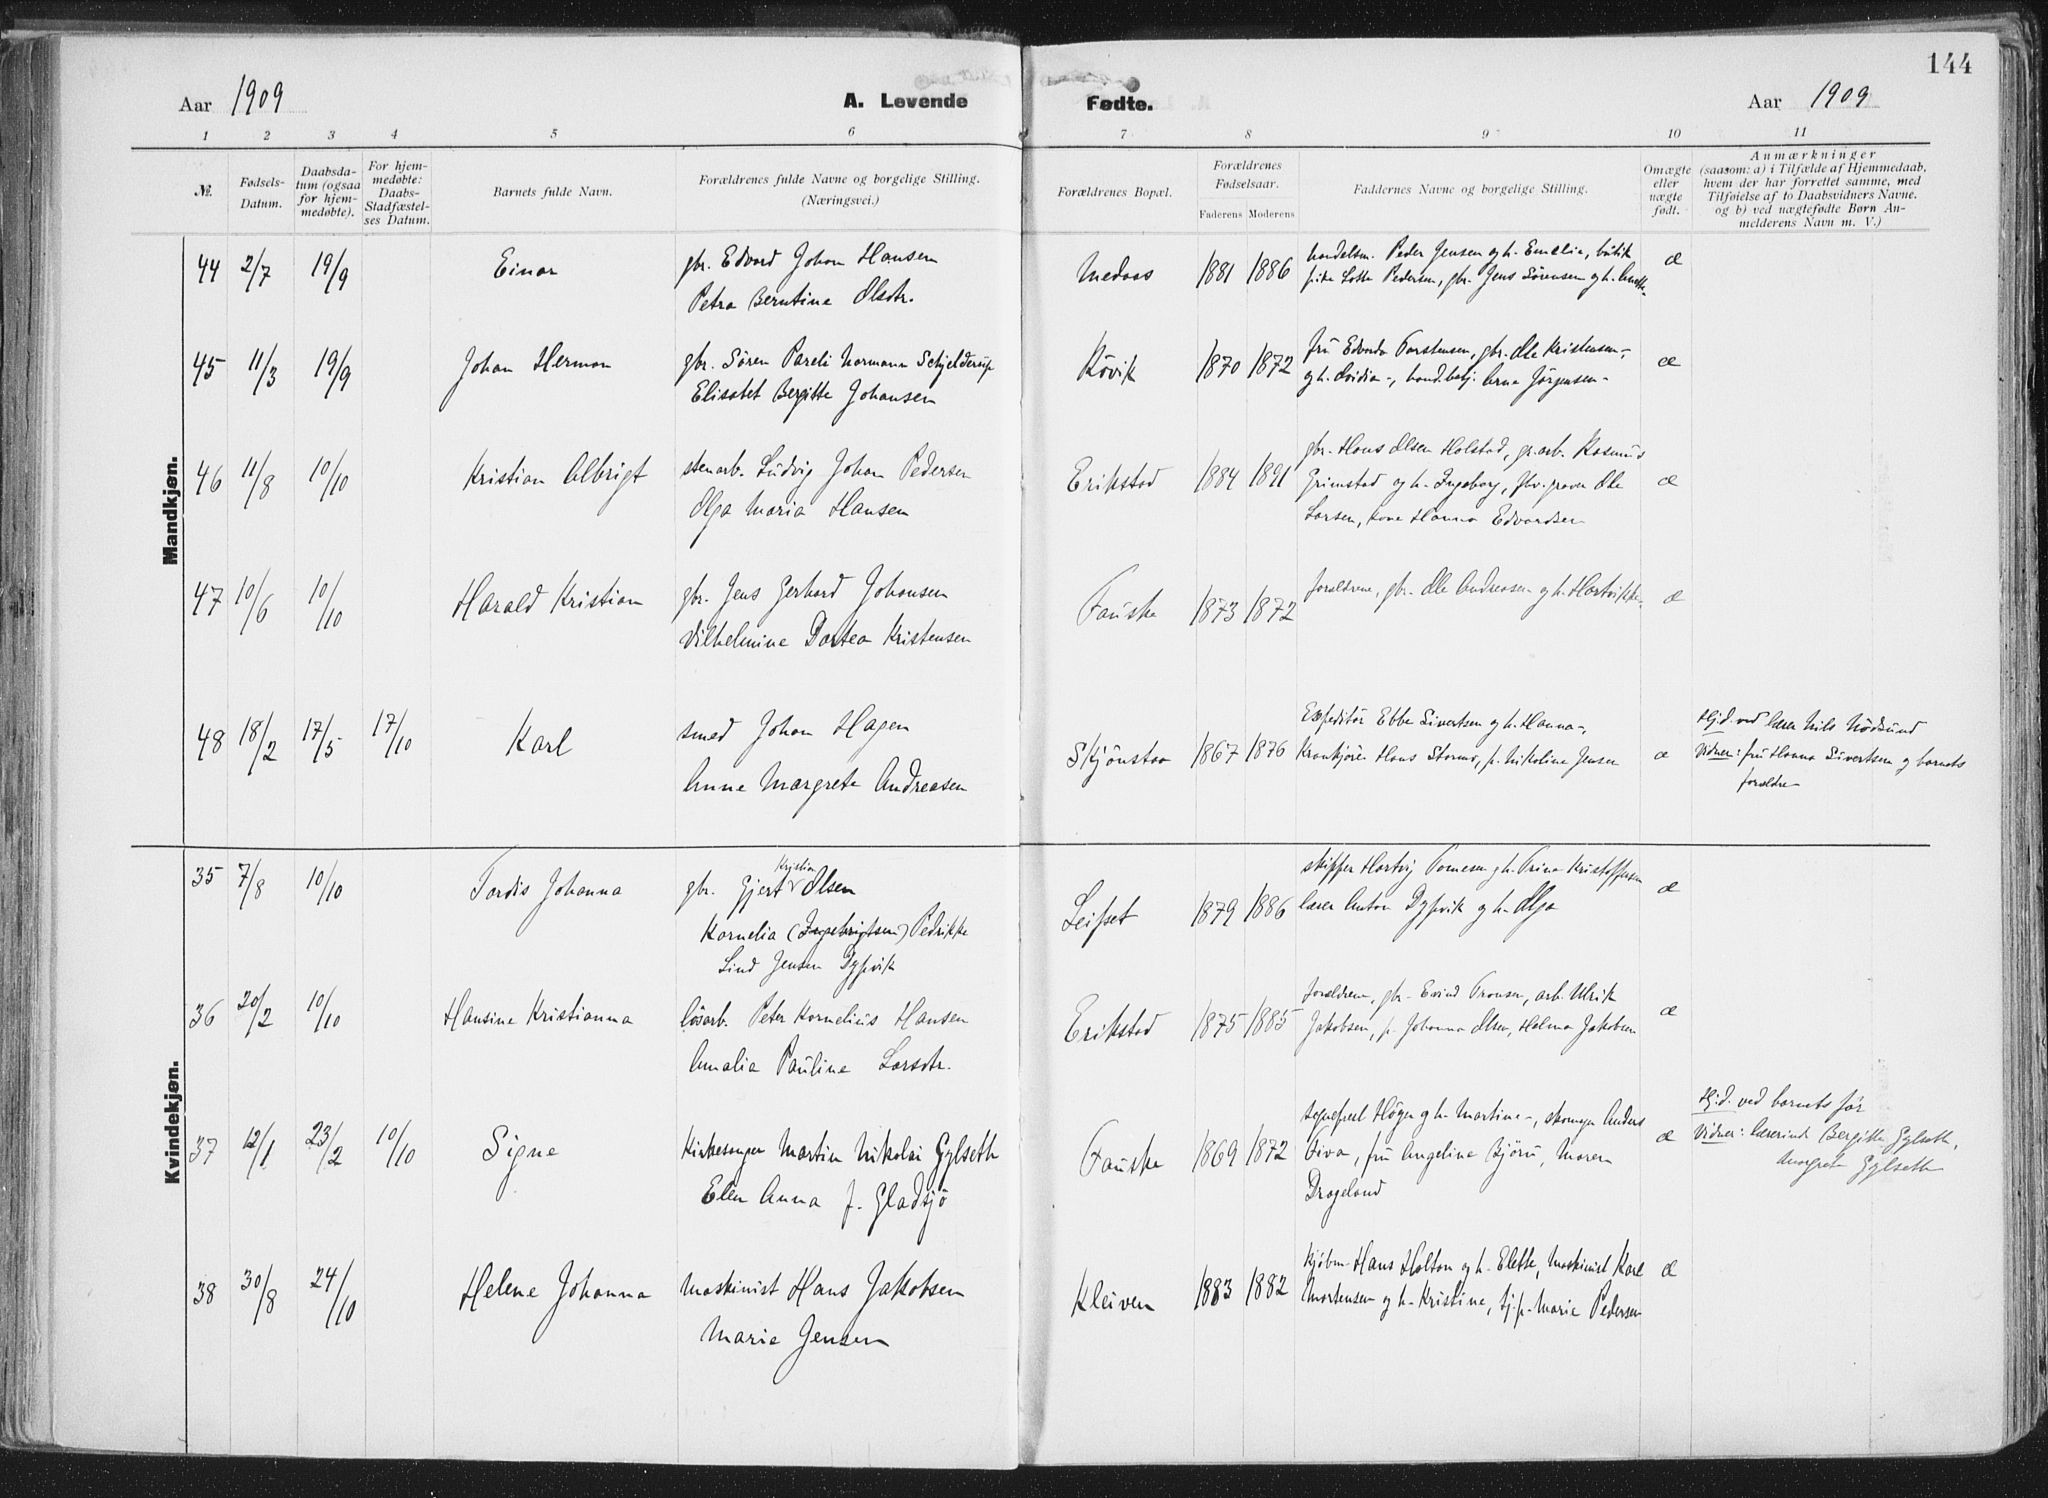 144
Aar 1909 A. Levende Fødte. Aar 1909
1 2 3 4 5 6 7 8 9 10 11
№.
Fødsels-
Datum.
Daabsda-
tum (ogsaa
for hjem-
medøbte).
For hjem-
medøbte:
Daabs-
Stadfæstel-
ses Datum.
Barnets fulde Navn.
Forældrenes fulde Navne og borgelige Stilling.
(Næringsvei.)
Forældrenes Bopæl.
Forældrenes
Fødselsaar.
Faderens Moderens
Faddernes Navne og borgelige Stilling.
Omægte
eller
nægte
født.
Anmærkninger
(saasom: a) i Tilfælde af Hjemmedaab,
hvem der har forrettet samme, med
Tilføielse af to Daabsvidners Navne.
og b) ved uægtefødte Børn An-
melderens Navn m. V.)
Mandkjøn.
44 2/7 19/9 Einar
gbr. Edvard Johan Hansen
Petra Berntine Olsdtr.
Medaas 1881 1886
handelsm. Peder Jensen og h. Emelie, butik
pike Lotte Pedersen, gbr. Jens Sörensen og h. Anette-
æ
45 11/3 19/9 Johan Herman
gbr. Sören Pareli Normann Schjelderup
Elisabet Bergitte Johansen
Kövik 1870 1872
fru Edvarda Torstensen, gbr. Ole Kristensen-,
og h. Ovidia-, hand.betj. Arne Jörgensen-
æ
46 11/8 10/10 Kristian Albrigt
stenarb. Ludvig Johan Pedersen
Olga Maria Hansen
Erikstad 1884 1891
gbr. Hans Olsen Holstad, gr.arb. Rasmus
Grimstad og h. Ingeborg, Ole
Larsen, kone Hanna Edvardsen
æ
47 10/6 10/10 Harald Kristian
gbr. Jens Gerhard Johansen
Vilhelmine Dortea Kristensen
Fauske 1873 1872
forældrene, gbr. Ole Andreasen og h. Hartvikke-
æ
48 18/2 17/5 17/10 Karl
smed Johan Hagen
Anne Margrete Andreasen
Skjönstaa 1867 1876
Expeditör Ebbe Sivertsen og h. Hanna-,
Krankjörer Hans Storm, p. Nikoline Jensen
æ
Hj.d. ved lærer Nils Nödsund
Vidner: fru Hanna Sivertsen og barnets
forældre
Kvindekjøn.
35 7/8 10/10 Tordis Johanna
Kristian
gbr. Gjert Olsen
Kornelia (Ingebrigtsen) Pedrikke
Lind Jensen Dypvik
Leifset 1879 1886
skipper Hartvig Tomesen og h. Trine Kristoffersen
lærer Anton Dypvik og h. Olga
æ
36 20/2 10/10 Hansine Kristianna
lösarb. Peter Kornelius Hansen
Amalie Pauline Larsdtr.
Erikstad 1875 1885
forældrene, gbr. Evind Tronsen, arb. Ulrik
Jakobsen, p. Johanna Olsen, Helma Jakobsen
æ
37 12/1 23/2 10/10 Signe
Kirkesanger Martin Nikolai Gylseth
Elen Anna f. Gladsjö
Fauske 1869 1872
sogneprest Högen og h. Martine-, skomgr Anders
Tiva, fru Angeline Björu, Maren
Drageland
æ
Hj.d. ved barnets far
Vidner: lærerinde Bergitte Gylseth,
Margrete Gylseth
38 30/8 24/10 Helene Johanna
Maskinist Hans Jakobsen
Marie Jensen
Kleiven 1883 1882
kjöbm. Hans Holton og h. Elette, Maskinist Karl
Mortensen og h. Kristine, tj.p. Marie Pedersen
æ